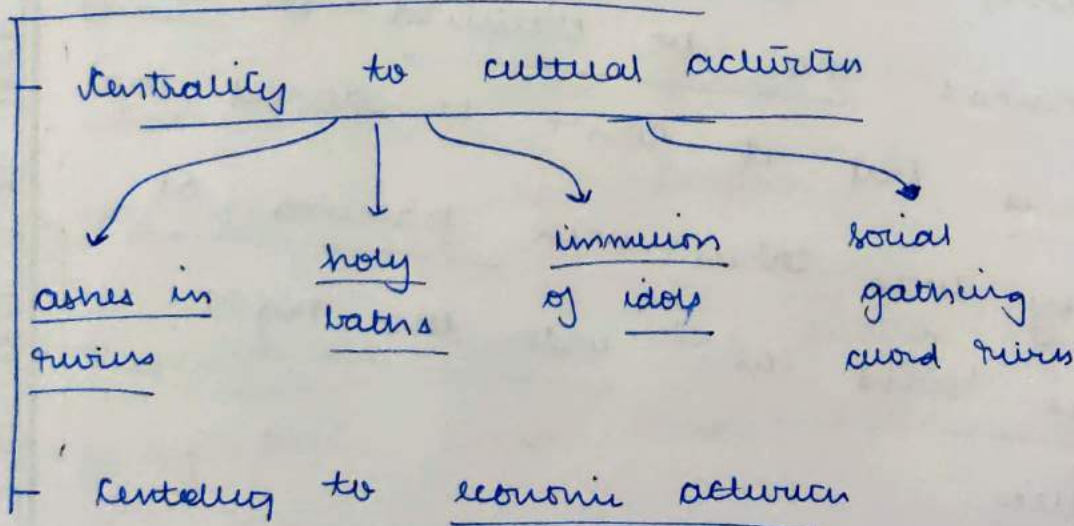 Centrality to cultural activities
ashes in rivers
holy baths
immersion of idols
social gathering around rivers
Centrality to economic activities